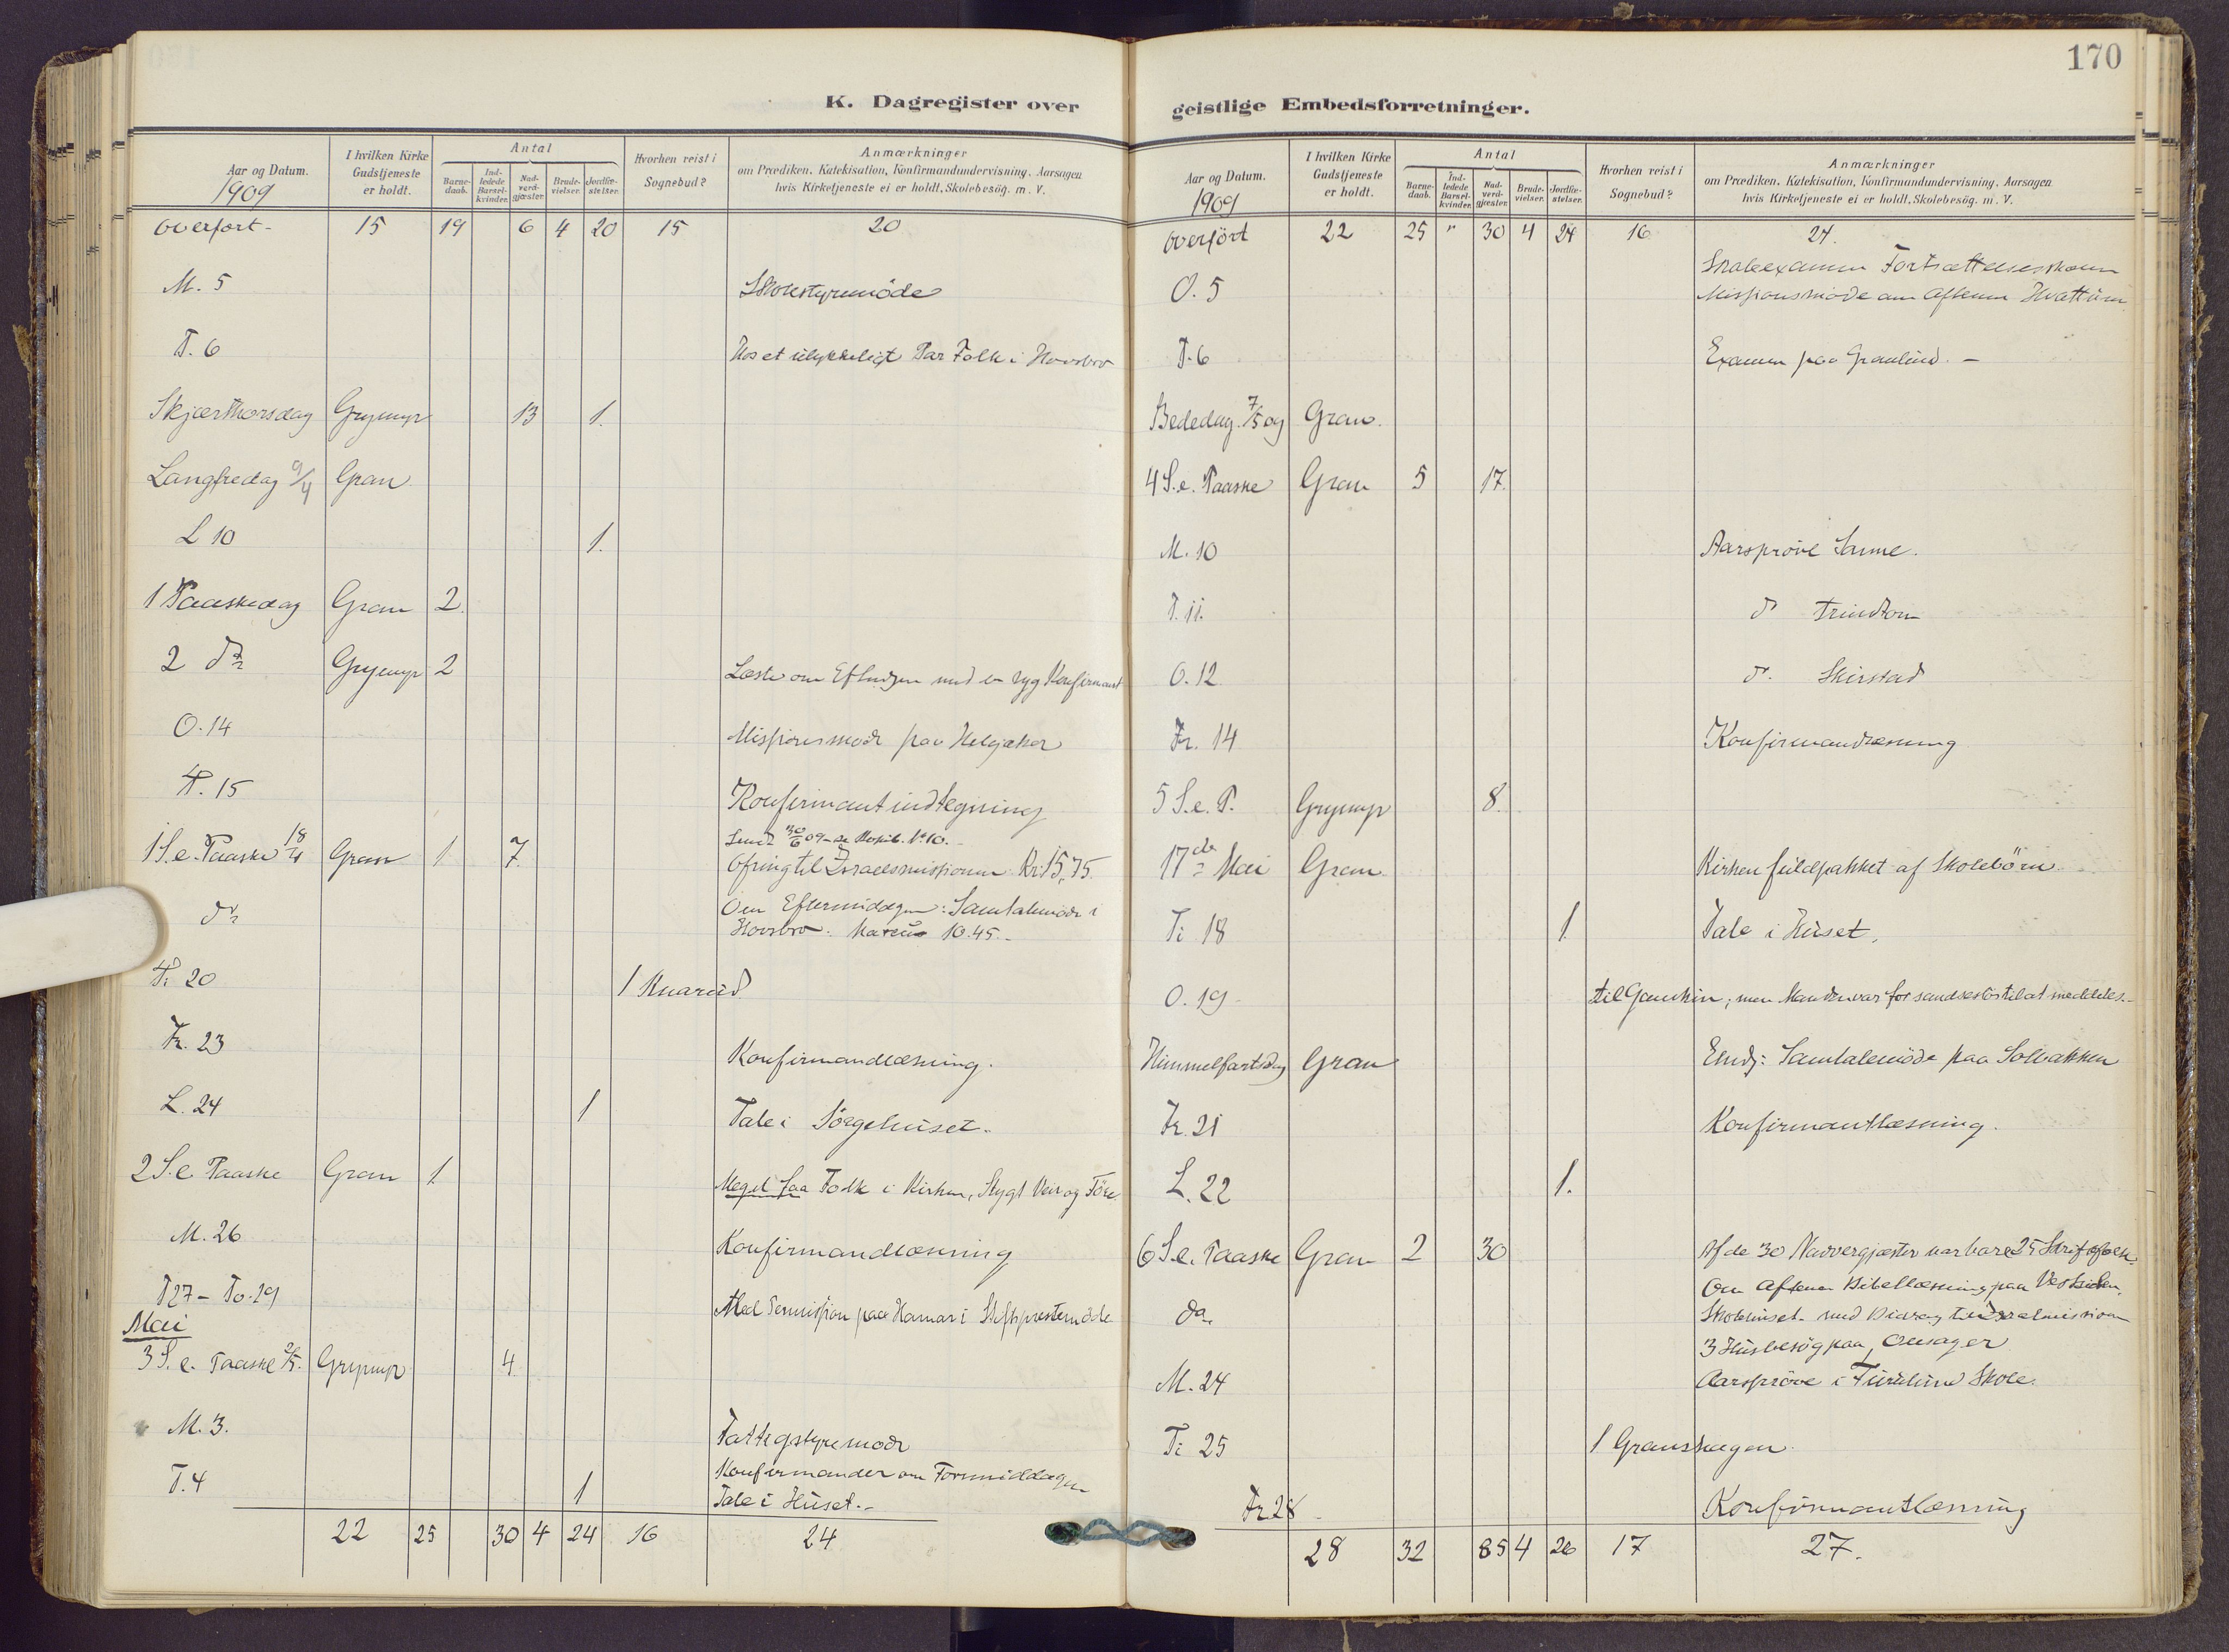 170
K. Dagregister over
Aar og Datum. 1909
I hvilken Kirke Gudstjeneste er holdt.
Antal
Barne-daab.
Ind-ledede Barsel-kvinder.
Nad-verd-gjæster.
Brude-vielser.
Jordfæ-stelser.
Hvorhen reist i Sognebud?
Anmærkninger
om Prædiken. Katekisation, Konfirmandundervisning. Aarsagen
hvis Kirketjeneste ei er holdt, Skolebesög. m. V.
Overfort- 15 19 6 4 20 15 20
M. 5 Skolestyremöde
T. 6 Hos et ulykkeligt Par Folk i Hovsbro
Skjærthorsdag Grymyr 13 1.
Langfredag 9/4 Gran
L 10 1.
1 Paaskedag Gran 2.
2 do Grymyr 2 Læste om Eftmdgen med en syg Konfirmant
O. 14 Missionsmöde paa Helgaker
T. 15 Konfirmantindtegning
Sendt 30/6 09 - se Kopib. No 10.
1 S. e. Paaske 18/4 Gran 1 7. Ofring til Israelsmissionen Kr. 15,75.
do Om Eftermiddagen: Samtalemöde i
Hovsbro. Marcus 10.45.
Ti 20 1 Knarud
Fr. 23 Konfirmandlæsning.
L. 24 1 Tale i Sörgehuset.
2 S. e. Paaske Gran 1. Meget faa Folk i Kirken, Stygt Veir og Före.
M. 26 Konfirmandlæsning
T 27 - To. 29 Med Permission paa Hamar i Stiftsprestemöde
Mai
3 S. e. Paaske 2/5. Grymyr 4
M. 3. Fattigstyremöde
Konfirmander om Formiddagen
T. 4 1 Tale i Huset.
22 25 30 4 24 16 24
geistlige Embedsforretninger.
Aar og Datum. 1909
I hvilken Kirke Gudstjeneste er holdt.
Antal
Barne-daab.
Ind-ledede Barsel-kvinder.
Nad-verd-gjæster.
Brude-vielser.
Jordfæ-stelser.
Hvorhen reist i Sognebud?
Anmærkninger
om Prædiken. Katekisation, Konfirmandundervisning. Aarsagen
hvis Kirketjeneste ei er holdt, Skolebesög. m. V.
Overfört 22 25 " 30 4 24 16 24.
Skoleexamen Fortsættelsesskolen
O. 5 Missionsmöde om Aftenen Hvattum
T. 6 Examen paa Granlund. -
Bededag 7/5 og Gran.
4 S. e. Paaske Gran 5 17.
M. 10 Aarspröve Sanne.
T. 11. do Trintom
O. 12 do Skirstad
Fr. 14 Konfirmandlæsning
5 S. e. P. Grymyr 8.
17de Mai Gran Kirken fuldpakket af Skolebörn
Ti 18 1 Tale i Huset.
O. 19 til Gamkin; men Manden var for sandseslös til at meddeles.
Himmelfartsdag Gran Emdg: Samtalemöde paa Solbakken
Fr. 21 Konfirmantlæsning.
L. 22 1.
6 S. e. Paaske Gran 2 30 Af de 30 Nadvergjæster var bare 25
Om Aftenen Bibellæsning paa
do Skolehuset med Bidrag til Israelmission
3 Husbesög paa
M. 24 Aarspröve i Skole.
Ti 25 1 Granskagen
Fr 28 Konfirmantlæsning
28 32 85 4 26 17 27.